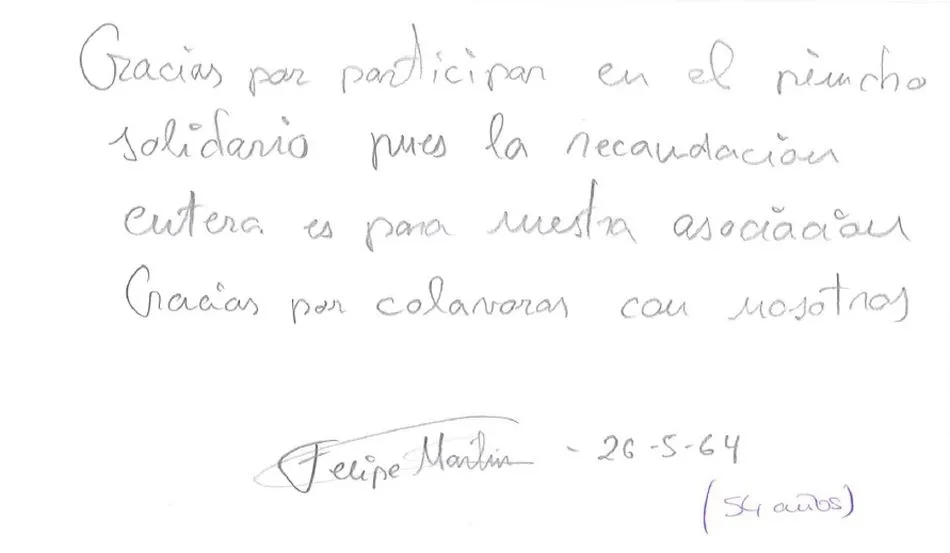 Gracias por participar en el pincho
solidario pues la recaudación
entera es para nuestra asociación
Gracias por colavorar con nosotros
Felipe Martin - 26-5-64
(54 años)